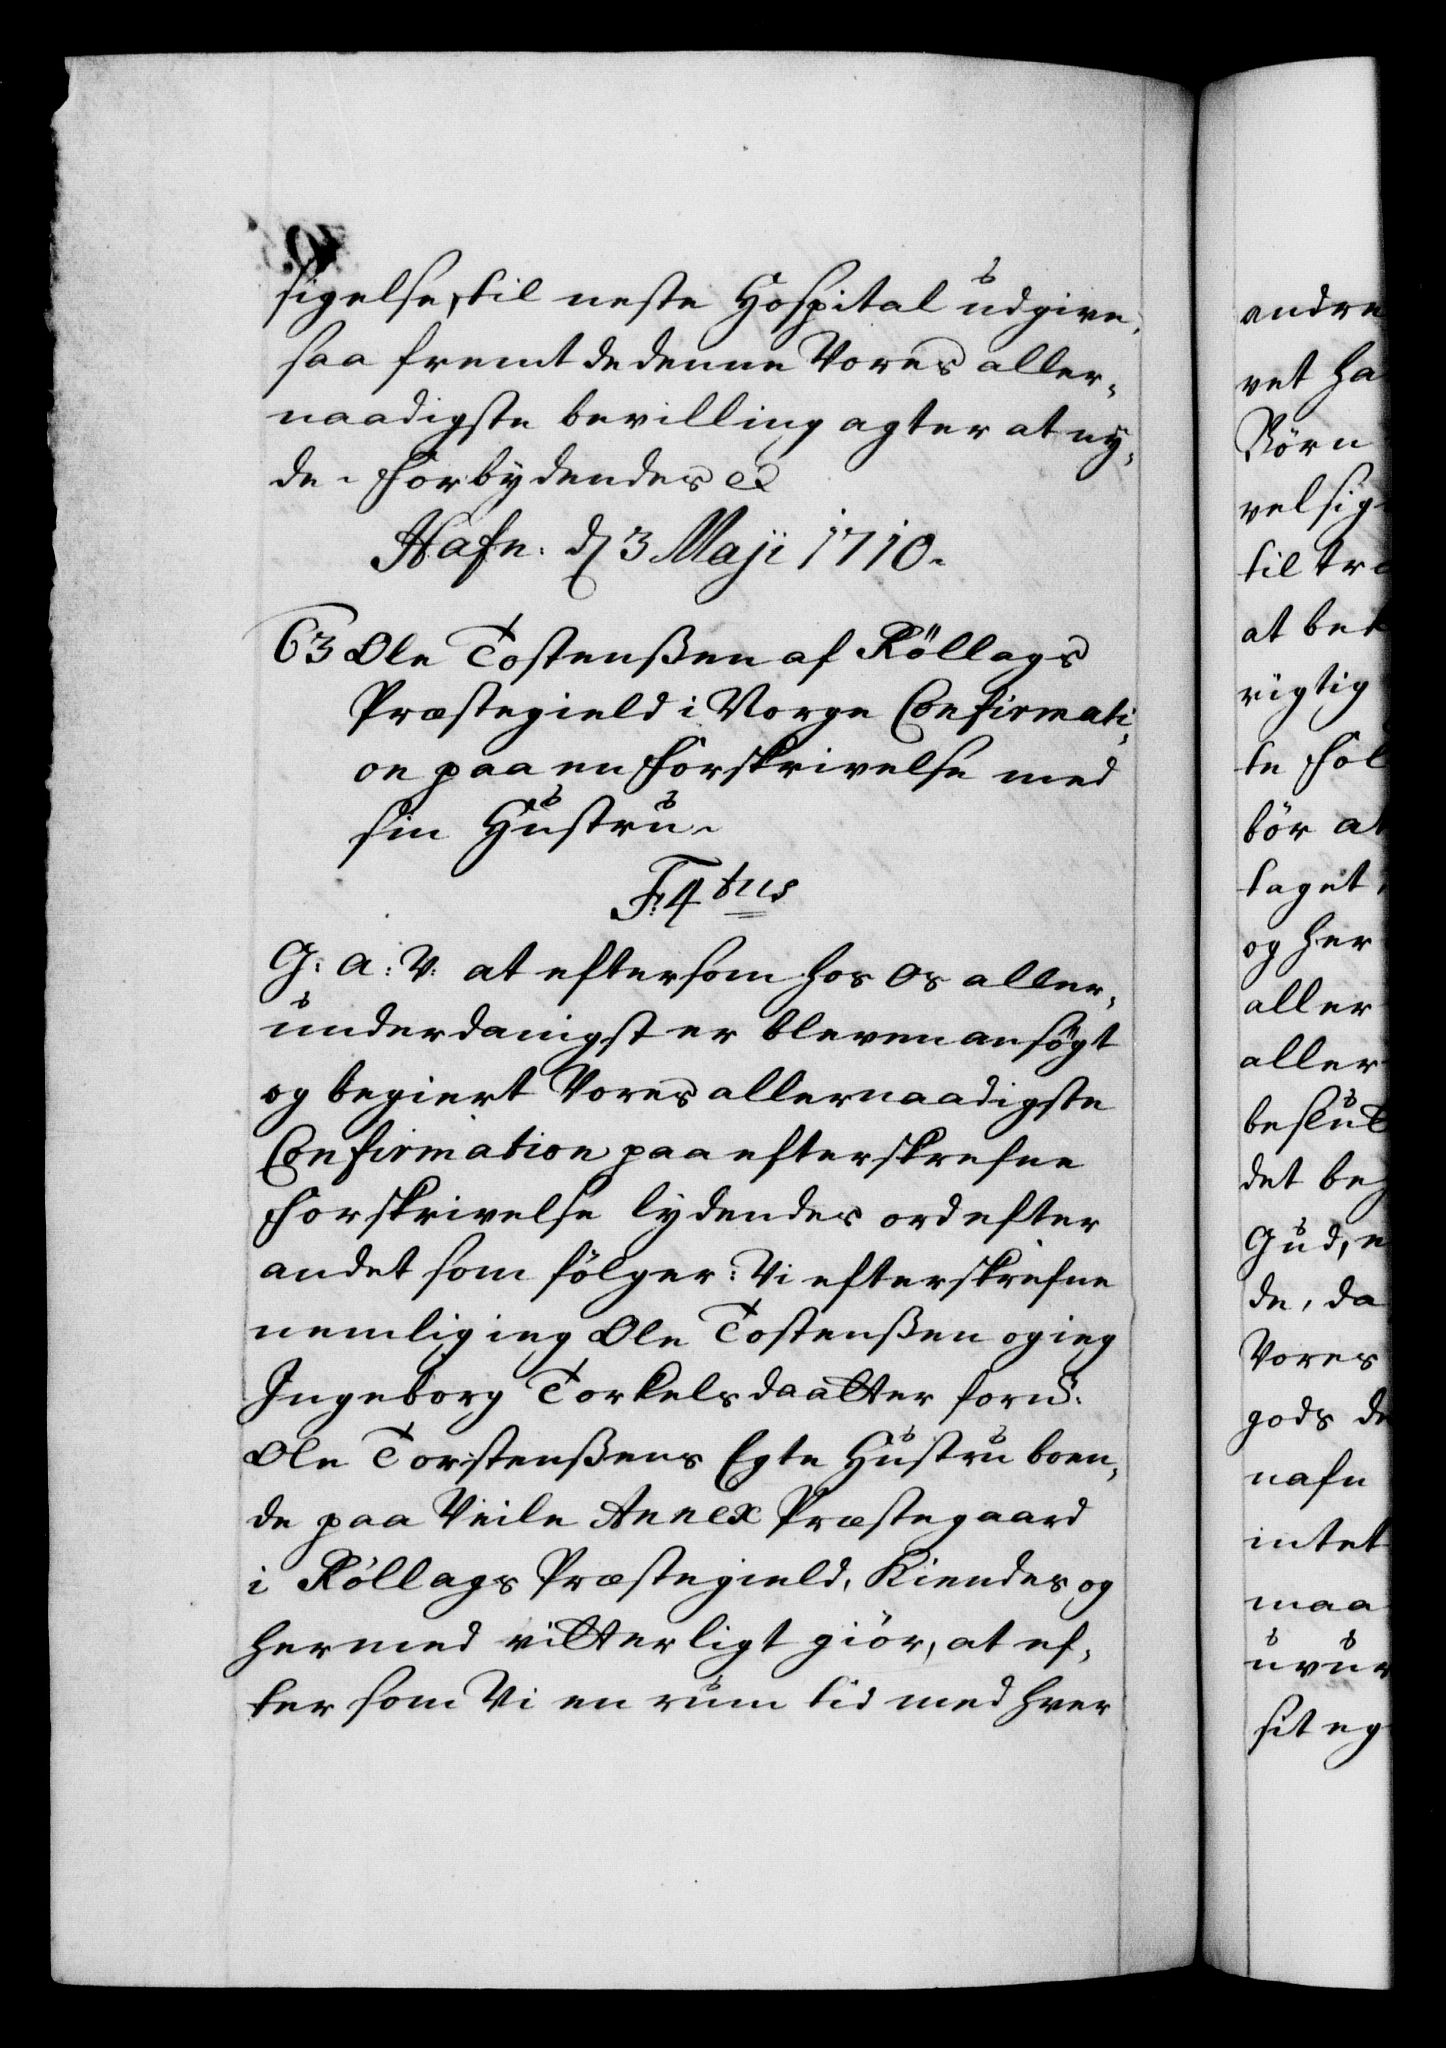 sigelse, til neste Hospital udgive,
saa fremt de denne Vores aller-
naadigste bevilling agter at ny-
de. Forbydendes &
Hafn: d 3 Maji 1710.
63 Ole Tostenßen af Röllags
Præstegield i Norge Confirmati-
on paa en Forskrivelse med
sin Hustru.
F: 4tus
G: A: V: at eftersom hos Os aller-
underdanigst er bleven ansögt
og begiert Vores allernaadigste
Confirmation paa efterskrefne
Forskrivelse lydendes ord efter
andet som fölger: Vi efterskrefne
nemlig ieg Ole Tostenßen og ieg
Ingeborg Torkelsdaatter forn:
Ole Torstenßens Egte Hustru boen-
de paa Veile Annex Præstegaard
i Röllags Præstegield, Kiendes og
hermed vitterligt giör, at ef-
ter som Vi en rum tid med hver
andre
vet ha
Börn
velsig
til tre
at bet
rigtig
te fol
bör at
taget
og her
aller
aller
beslut
det beg
Gud, e
de, da
Vores
gods de
nafn
intet
maa
uvur
sit eg